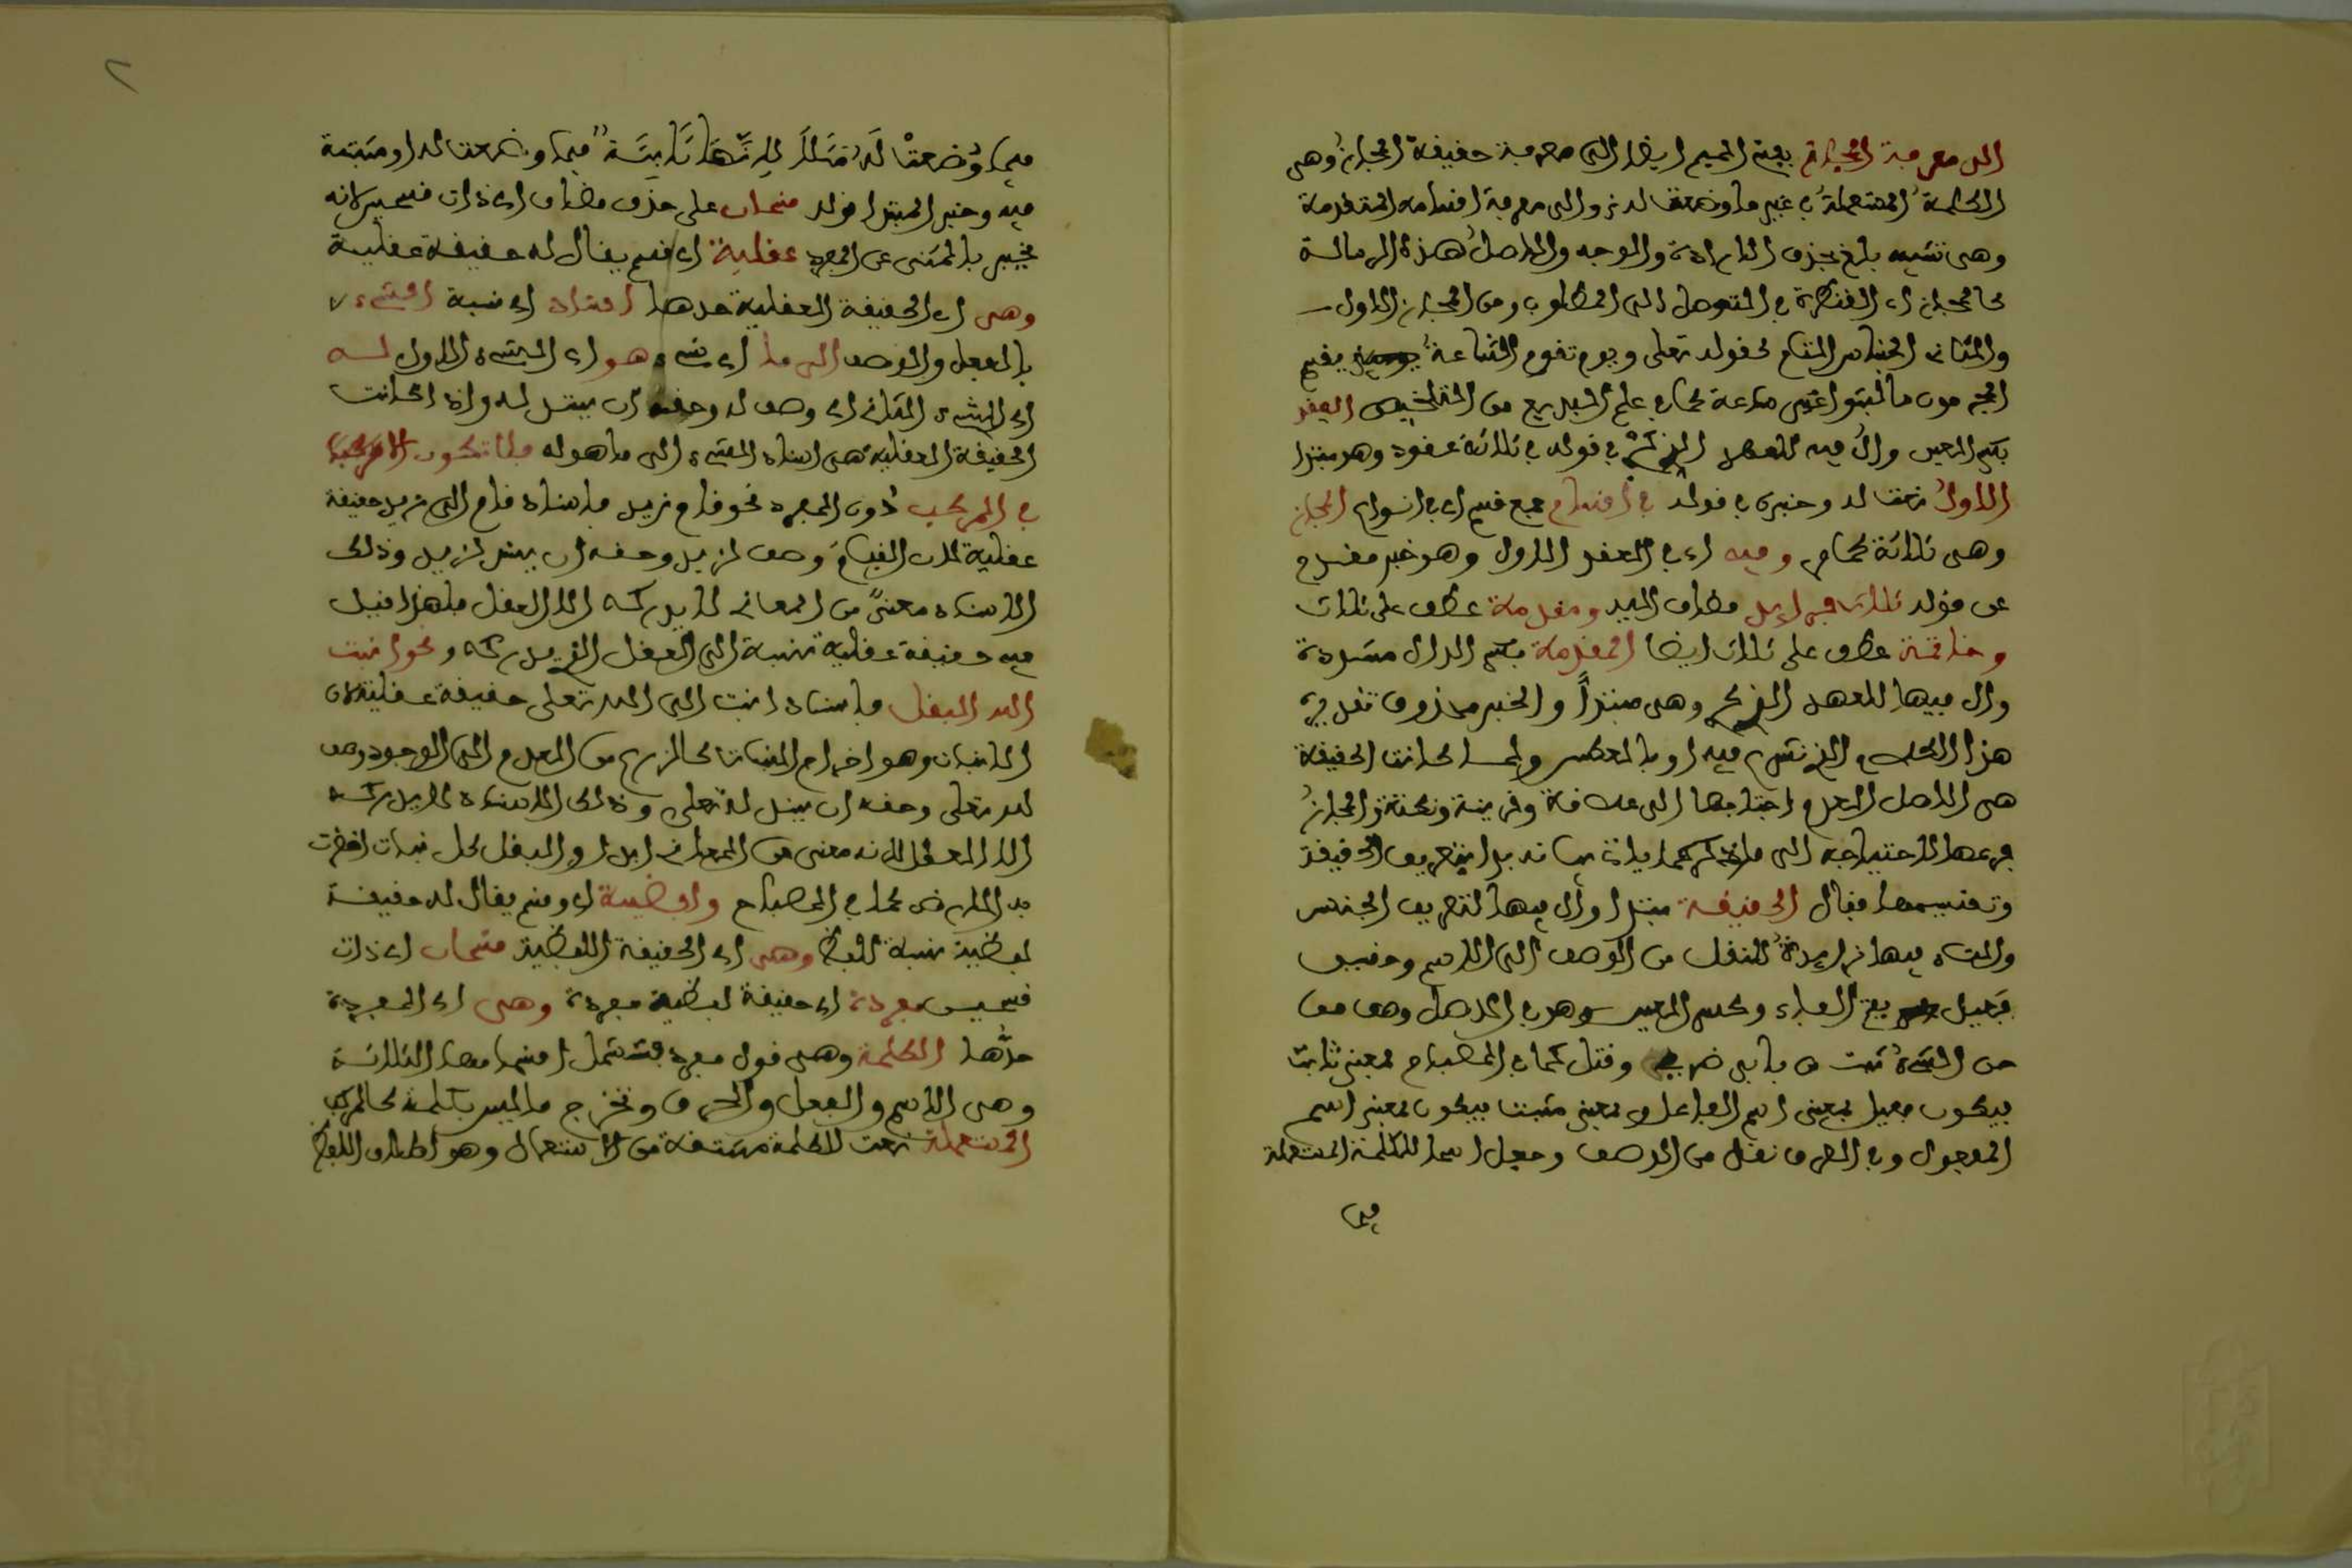 الى معرفة المجاز بفتح الميم ايضا الى معرفة حقيقة المجاز وهي
الكلمة المستعملة في غير ما وضعت له والى معرفة اقسامه المتقدمة
وهي تشبيه بليغ بحذف الاداة والوجه والاصل هذه الرسالة
كالمجاز اي القنطرة في التوصل الى المطلوب ومن المجاز الاول
والثاني الجناس التام كقوله تعلى ويوم تقوم الساعة يقسم
المجرمون ما لبثوا غير ساعة كما في علم البديع من التلخيص العقد
بكسر العين وال فيه للعهد الذكري في قوله في ثلاثة عقود وهو مبتدا
الاول نعت له وخبره في قوله في اقسام جمع قسم اي في انواع المجاز
وهي ثلاثة كما مر وفيه اي في العقد الاول وهو خبر مقدم
عن قوله ثلاث فرايد مضاف اليه ومقدمة عطف على ثلاث
وخاتمة عطف على ثلاث ايضا المقدمة بكسر الدال مشددة
وال فيها للعهد الذكري وهي مبتدأ والخبر محذوف تقديره
هذا الكلام الذي نشرع فيه او بالعكس ولما كانت الحقيقة
هي الاصل لعدم احتياجها الى علاقة وقرينة ونكتة والمجاز
فرعها لاحتياجه الى ما ذكر كما ياتي بيانه بدا بتعريف الحقيقة
وتقسيمها فقال الحقيقة مبتدا وال فيها لتعريف الجنس
والتاء فيها زايدة للنقل من الوصف الى الاسم وحقيق
فعيل بفتح الفاء وكسر العين وهو في الاصل وصف من
حق الشيء ثبت من بابي ضرب وقتل كما في المصباح بمعنى ثابت
فيكون فعيل بمعنى اسم الفاعل او بمعنى مثبت فيكون بمعنى اسم
المفعول وفي العرف نقل من الوصف وجعل اسما للكلمة المستعملة
فيما
فيما وُضعتْ لَه مَثَلاً لانها ثابتة فيما وضعت له او مثبتة
فيه وخبر المبتدا قوله قسمان على حذف مضاف اي ذات قسمين لانه
يخبر بالمثنى عن المفرد عقلية اي قسم يقال له حقيقة عقلية
وهي اي الحقيقة العقلية حدها اسناد اي نسبة الشيء
بالفعل والوصف الى ما اي شيء هو اي الشيء الاول له
اي الشيء الثاني اي وصف له وحقه ان يسند له واذا كانت
الحقيقة العقلية هي اسناد الشيء الى ما هو له فلا تكون الا مركبة
في المركب دون المفرد نحو قام زيد فاسناد قام الى زيد حقيقة
عقلية لان القيام وصف لزيد وحقه ان يسند لزيد وذلك
الاسناد معنىً من المعاني لا يدركه الا العقل فلهذا قيل
فيه حقيقة عقلية نسبة الى العقل الذي يدركه ونحو انبت
الله البقل فاسناد انبت الى الله تعلى حقيقة عقلية لان
الانبات وهو اخراج النبات كالزرع من العدم الى الوجود وصف
لله تعلى وحقه ان يسند له تعلى وذلك الاسناد لا يدركه
الا العقل لانه معنى من المعاني ايضا والبقل كل نبات اخضرت
به الارض كما في المصباح ولفظية اي وقسم يقال له حقيقة
لفظية نسبة للفظ وهي اي الحقيقة اللفظية قسمان اي ذات
قسمين مفردة اي حقيقة لفظية مفردة وهي اي المفردة
حدُّها الكلمة وهي قول مفرد فتشمل اقسامها الثلاثة
وهي الاسم والفعل والحرف وتخرج ما ليس بكلمة كالمركب
المستعملة نعت للكلمة مشتقة من الاستعمال وهو اطلاق اللفظ